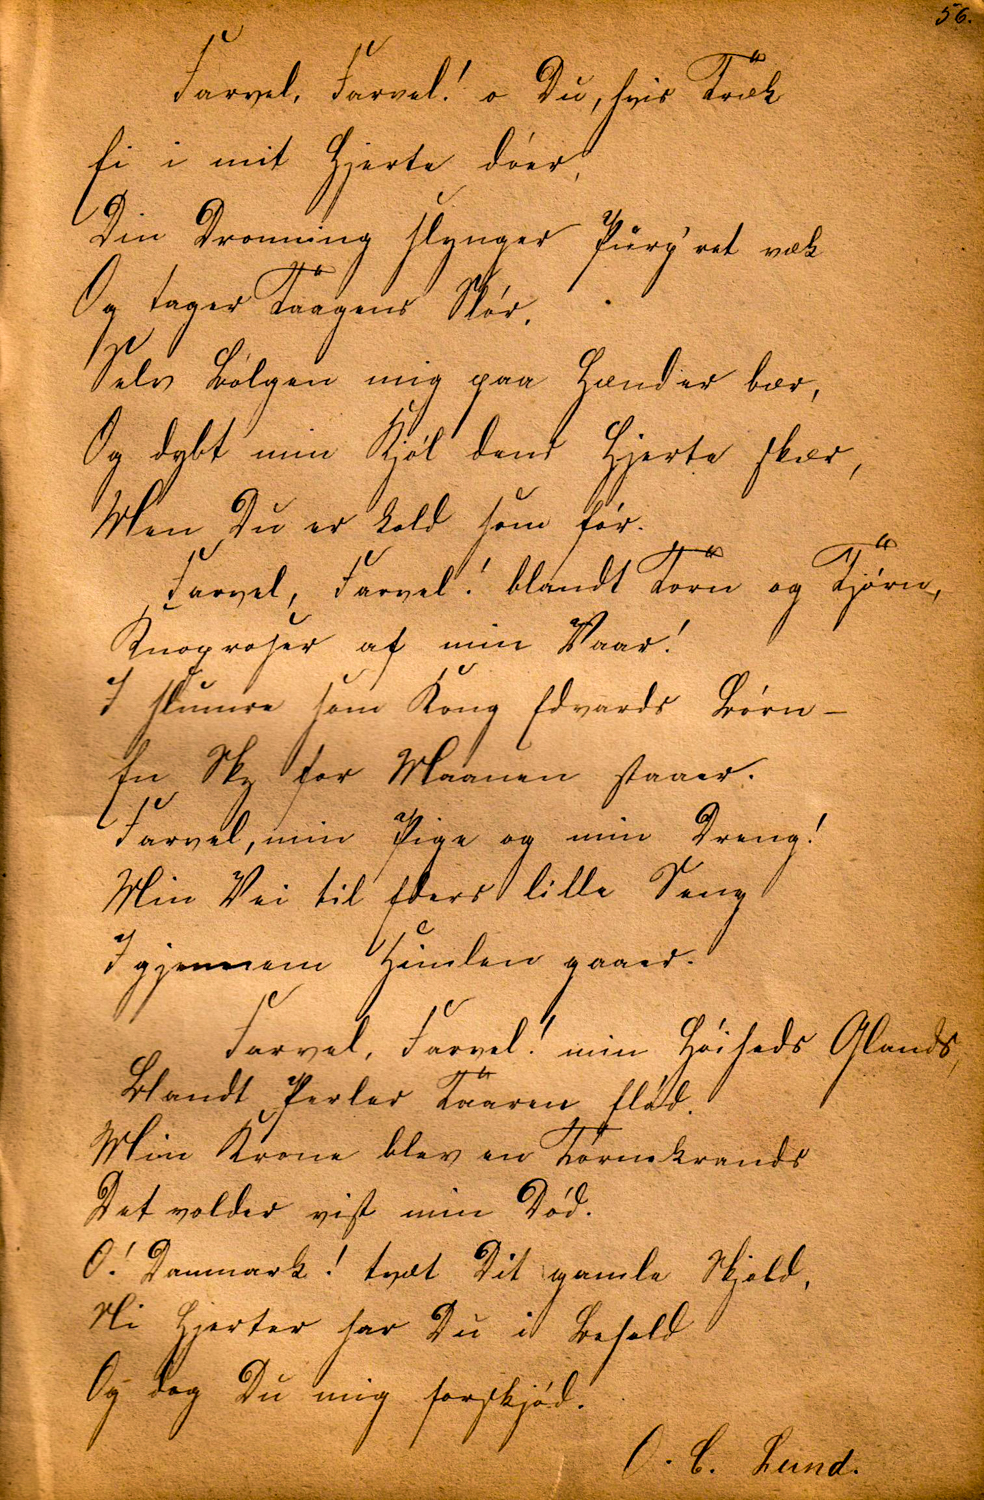 56.
Farvel, Farvel! o Du, hvis Træk
Ei i mit Hjerte dóer,
Din Dronning slynger Púrp'ret væk
Og tager Taagens Slór.
Selv Bólgen mig paa Hænder bær,
Og dybt min Kjól dens Hjerte skær,
Men Du er kold som fór.
Farvel, Farvel! blandt Törn og Tjórn,
Knoproser af min Vaar!
I slumre som Kong Edvards Bórn –
En Sky for Maanen staaer.
Farvel, min Pige og min Dreng!
Min Vei til Eders lille Seng
Igjennem Himlen gaaer.
Farvel, Farvel! min Hóiheds Glands,
Blandt Perler Taaren flód.
Min Krone blev en Törnekrands
Det volder vist min Dód.
O! Danmark! tvæt Dit gamle Skjold,
Ni Hjerter har Du i Behold
Og dog Du mig forskjód.
O. C. Lund.